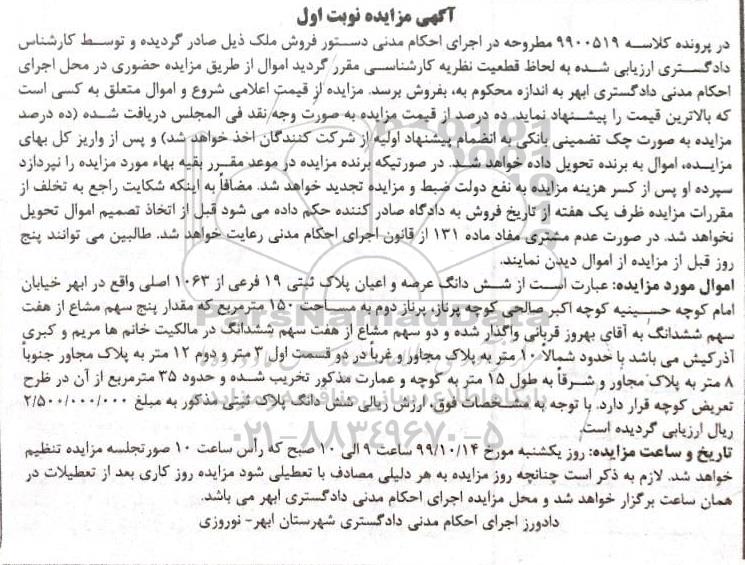 آگهی مزایده نوبت اول
در پرونده کلاسه ۹۹۰۰۵۱۹ مطروحه در اجرای احکام مدنی دستور فروش ملک ذیل صادر گردیده و توسط کارشناس
دادگستری ارزیابی شده به لحاظ قطعیت نظریه کارشناسی مقرر گردید اموال از طریق مزایده حضوری در محل اجرای
احکام مدنی دادگستری ابهر به اندازه محکوم به، بفروش برسد. مزایده از قیمت اعلامی شروع و اموال متعلق به کسی است
که بالاترین قیمت را پیشنهاد نماید. ده درصد از قیمت مزایده به صورت وجه نقد فی المجلس دریافت شده (ده درصد
مزایده به صورت چک تضمینی بانکی به انضمام پیشنهاد اولیه از شرکت کنندگان اخذ خواهد شد) و پس از واریز کل بهای
مزایده، اموال به برنده تحویل داده خواهد شد. در صورتیکه برنده مزایده در موعد مقرر بقیه بهاء مورد مزایده را نپردازد
سپرده او پس از کسر هزینه مزایده به نفع دولت ضبط و مزایده تجدید خواهد شد. مضافاً به اینکه شکایت راجع به تخلف از
مقررات مزایده ظرف یک هفته از تاریخ فروش به دادگاه صادر کننده حکم داده می شود قبل از اتخاذ تصمیم اموال تحویل
نخواهد شد. در صورت عدم مشتری مفاد ماده ۱۳۱ از قانون اجرای احکام مدنی رعایت خواهد شد. طالبین می توانند پنج
روز قبل از مزایده از اموال دیدن نمایند.
اموال مورد مزایده: عبارت است از شش دانگ عرصه و اعیان پلاک ثبتی ۱۹ فرعی از ۱۰۶۳ اصلی واقع در ابهر خیابان
امام کوچه حسینیه کوچه اکبر صالحی کوچه پرناز، پرناز دوم به مساحت ۱۵۰ مترمربع که مقدار پنج سهم مشاع از هفت
سهم ششدانگ به آقای بهروز قربانی واگذار شده و دو سهم مشاع از هفت سهم ششدانگ در مالکیت خانم ها مریم و کبری
آذرکیش می باشد با حدود شمالا ۱۰ متر به پلاک مجاور و غرباً در دو قسمت اول ۳ متر و دوم ۱۲ متر به پلاک مجاور جنوباً
۸ متر به پلاک مجاور و شرقاً به طول ۱۵ متر به کوچه و عمارت مذکور تخریب شده و حدود ۳۵ مترمربع از آن در طرح
تعریض کوچه قرار دارد. با توجه به مشخصات فوق، ارزش ریالی شش دانگ پلاک ثبتی مذکور به مبلغ ۲/۵۰۰/۰۰۰/۰۰۰
ریال ارزیابی گردیده است.
تاریخ و ساعت مزایده: روز یکشنبه مورخ ۹۹/۱۰/۱۴ ساعت ۹ الی ۱۰ صبح که رأس ساعت ۱۰ صورتجلسه مزایده تنظیم
خواهد شد. لازم به ذکر است چنانچه روز مزایده به هر دلیلی مصادف با تعطیلی شود مزایده روز کاری بعد از تعطیلات در
همان ساعت برگزار خواهد شد و محل مزایده اجرای احکام مدنی دادگستری ابهر می باشد.
دادورز اجرای احکام مدنی دادگستری شهرستان ابهر- نوروزی
ParsNamadData
۰۲۱-۸۸۳۴۹۶۷۰-۵